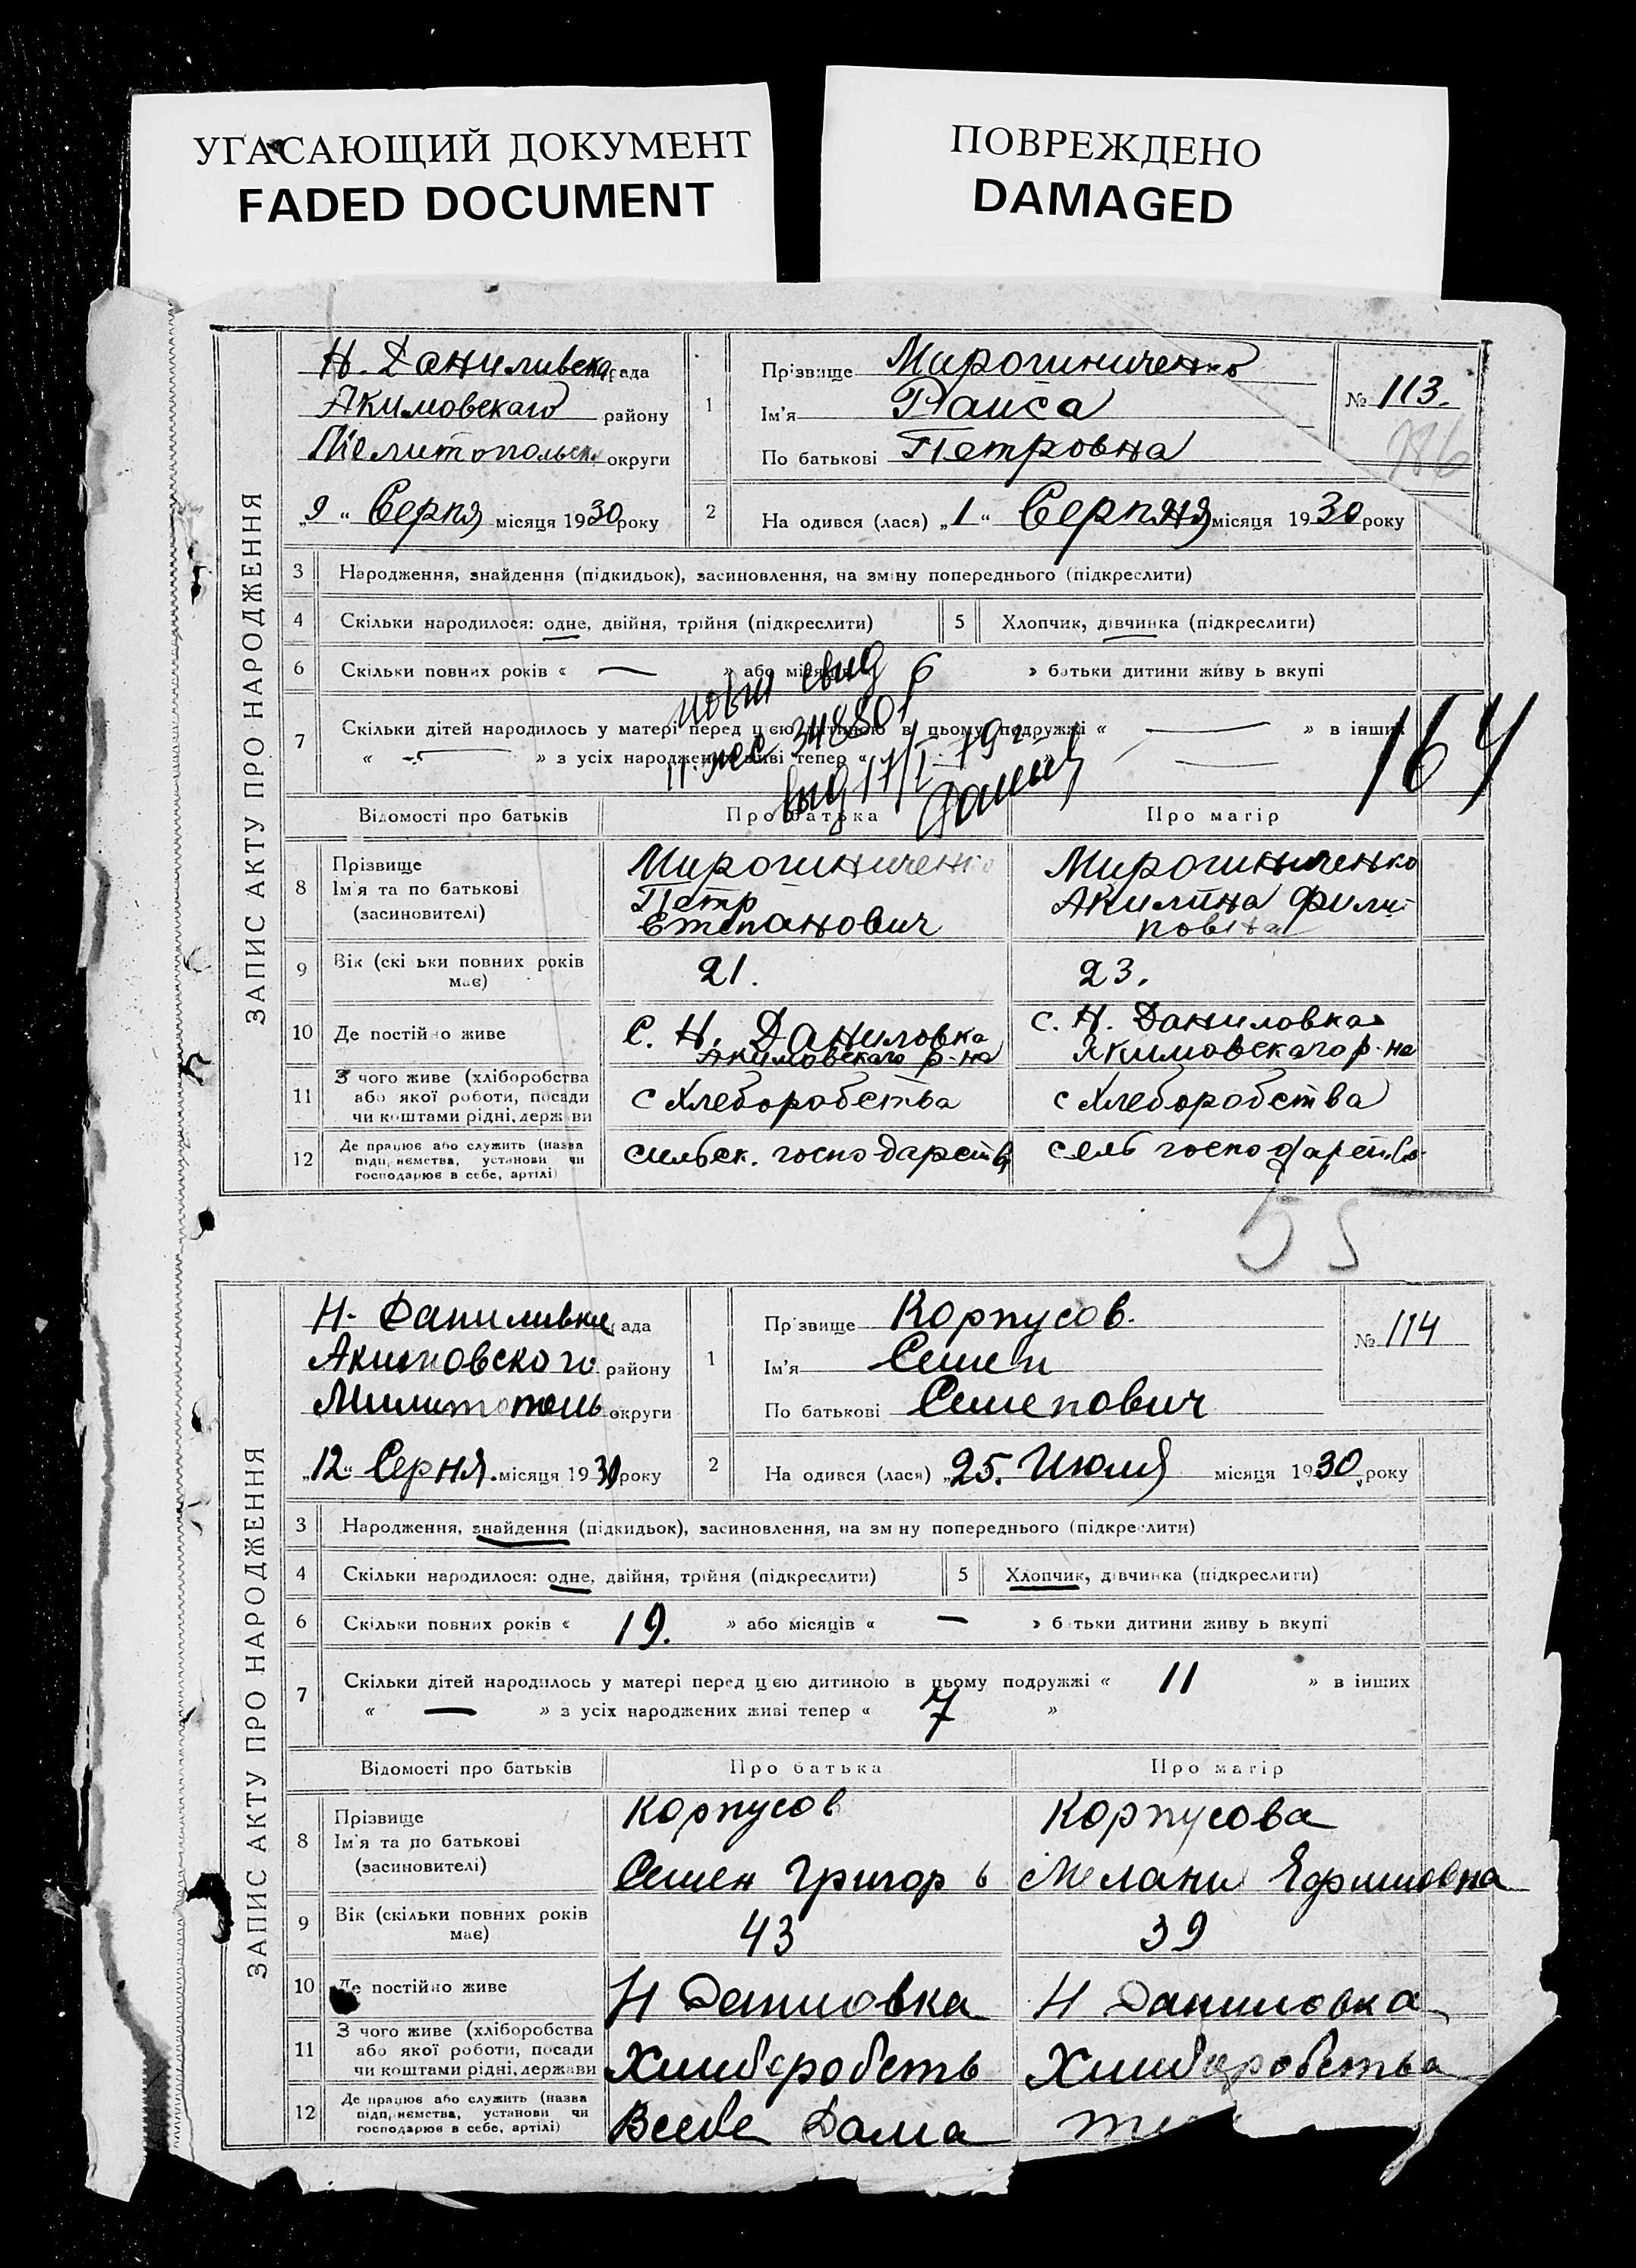 УГАСАЮЩИЙ ДОКУМЕНТ
FADED DOCUMENT
ПОВРЕЖДЕНО
DAMAGED
ЗАПИС АКТУ ПРО НАРОДЖЕННЯ
Н. Даниливска рада
Акимовскаго району
Мелитопольск. округи
„9“ Серпя місяця 1930 року
1 Прізвище Мирошниченко
Ім'я Раиса
По батькові Петровна
№ 113.
2 На одився (лася) „1“ Серпня місяця 1930 року
3 Народження, знайдення (підкидьок), засиновлення, на зміну попереднього (підкреслити)
4 Скільки народилося: одне, двійня, трійня (підкреслити)
5 Хлопчик, дівчинка (підкреслити)
6 Скільки повних років « — » або місяців 6 » батьки дитини живу ь вкупі
7 Скільки дітей народилось у матері перед цією дитиною в цьому подружжі « — » в інших
« — » з усіх народжених живі тепер « — »
164
Відомості про батьків
Про батька
Про матір
8 Прізвище
Ім'я та по батькові
(засиновителі)
Мирошниченко
Петр
Степанович
Мирошниченко
Акилина Фили-
повна
9 Вік (скі ьки повних років
має)
21.
23.
10 Де постійно живе
С. Н. Даниловка
Акимовскаго р-на
с. Н. Даниловка
Якимовскаго р-на
11 З чого живе (хліборобства
або якої роботи, посади
чи коштами рідні, держави
с хлеборобства
с хлеборобства
12 Де працює або служить (назва
підприємства, установи чи
господарює в себе, артілі)
сильск. господарств
сель господарство
55
ЗАПИС АКТУ ПРО НАРОДЖЕННЯ
Н. Даниливка рада
Акимовского району
Милитополь округи
„12“ Серпя. місяця 1930 року
1 Прізвище Корпусов.
Ім'я Семен
По батькові Семенович
№ 114
2 На одився (лася) „25. Июля місяця 1930 року
3 Народження, знайдення (підкидьок), засиновлення, на зм ну попереднього (підкреслити)
4 Скільки народилося: одне, двійня, трійня (підкреслити)
5 Хлопчик, дівчинка (підкреслити)
6 Скільки повних років « 19. » або місяців « — » б тьки дитини живу ь вкупі
7 Скільки дітей народилось у матері перед цією дитиною в цьому подружжі « 11 » в інших
« — » з усіх народжених живі тепер « 7 »
Відомості про батьків
Про батька
Про матір
8 Прізвище
Ім'я та по батькові
(засиновителі)
Корпусов
Семен Григор в
Корпусова
Мелани Ефимовна
9 Вік (скільки повних років
має)
43
39
10 Де постійно живе
Н Даниловка
Н Даниловка
11 З чого живе (хліборобства
або якої роботи, посади
чи коштами рідні, держави
Хлиборобств
Хлиборобства
12 Де працює або служить (назва
підприємства, установи чи
господарює в себе, артілі)
Всебе Дома